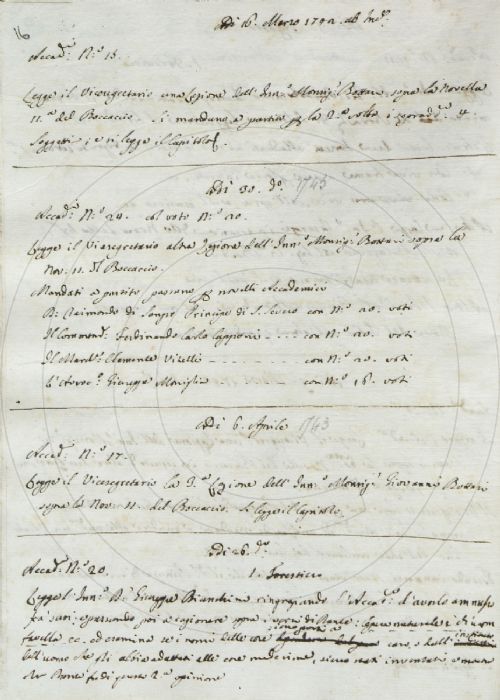 16
Adì 16. Marzo 1742. ab Inc.e
Accad.i N.o 13.
Legge il Vicesegretario una Lezione dell' Inn.o Monsig.r Bottari sopra la Novella
11.a del Boccaccio. Si mandano a partito p la 2.a volta i sopradd.i 4.
Soggetti; e si legge il Capitolo.
Adì 30. d.o 1743
Accad.i N.o 20. col voto N.o 20.
Legge il Vicesegretario altra Lezione dell' Inn.o Monsig.r Bottari sopra la
Nov. 11. del Boccaccio.
Mandati a partito passano p novelli Accademici
D. Raimondo di Sangro Principe di S. Severo con N.o 20. voti
Il Commend.r Ferdinando Carlo Capponi con N.o 20. voti
Il March. Clemente Vitelli con N.o 20. voti
L'Avvoc.o Giuseppe Maniglia con N.o 18. voti
Adì 6. Aprile 1743
Accad.i N.o 17.
Legge il Vicesegretario la 3.a Lezione dell' Inn.o Monsig.r Giovanni Bottari
sopra la Nov. 11. del Boccaccio. Si legge il Capitolo.
Adì 26. d.o
Accad.i N.o 20. 1. Forestiero
Legge l' Inn.o D. Giuseppe Bianchini ringraziando l'Accad.a d'averlo ammesso
fra suoi, e passando poi a ragionare sopra i versi di Dante: opera naturale è ch'uom
favella ec. ed esamina se i nomi delle cose sono posti a caso, o dall'
dell'uomo che gli abbia adattati alle cose medesime, sieno stati inventati, e mostra
Dante fu di questa 2.a opinione